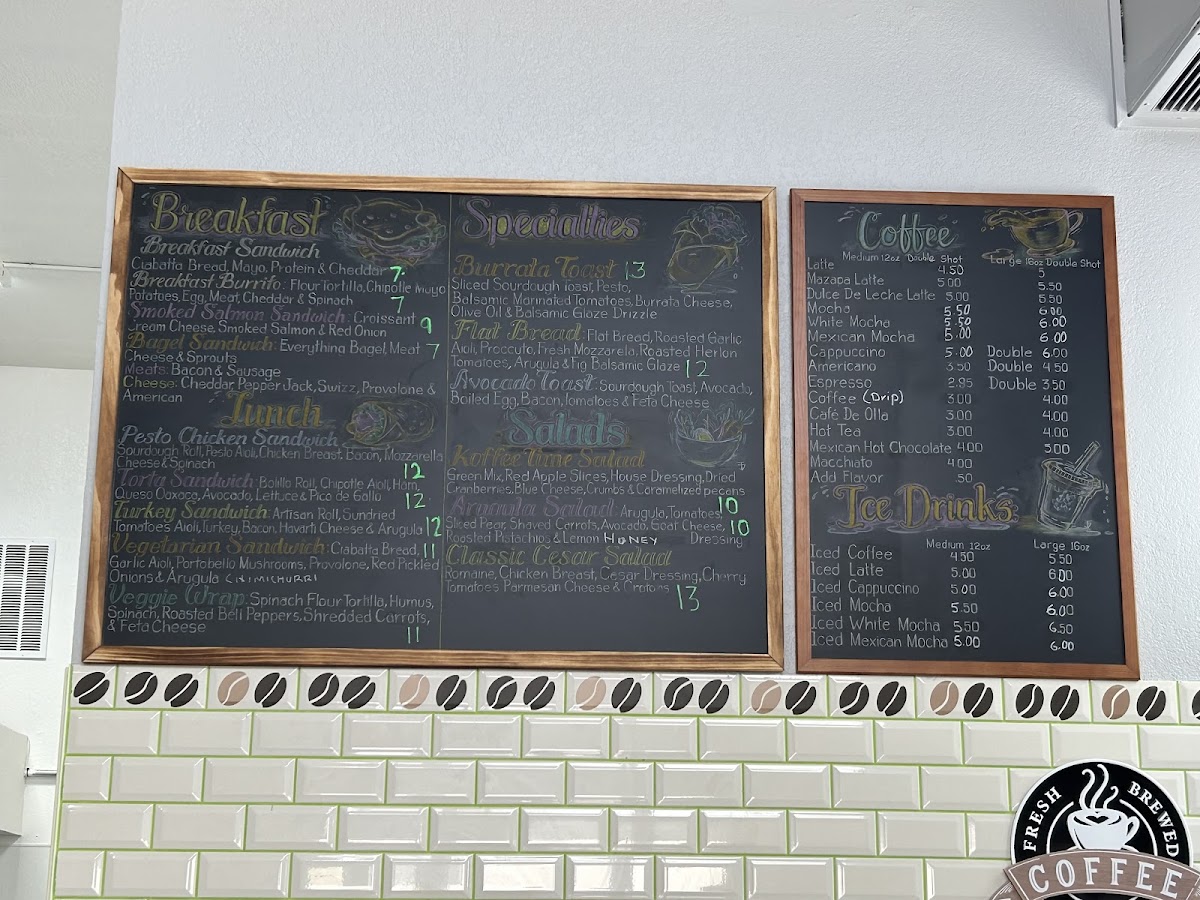 Breakfast
Breakfast Sandwich
Ciabatta Bread, Mayo, Protein & Cheddar 7.
Breakfast Burrito: Flour Tortilla, Chipotle Mayo
Potatoes, Egg, Meat, Cheddar & Spinach 7
Smoked Salmon Sandwich: Croissant
Cream Cheese, Smoked Salmon & Red Onion 9
Bagel Sandwich: Everything Bagel, Meat 7
Cheese & Sprouts
Meats: Bacon & Sausage
Cheese: Cheddar, Pepper Jack, Swizz, Provolone &
American
Lunch
Pesto Chicken Sandwich
Sourdough Roll, Pesto Aioli, Chicken Breast, Bacon, Mozzarella
Cheese & Spinach 12
Torta Sandwich: Bolillo Roll, Chipotle Aioli, Ham,
Queso Oaxaca, Avocado, Lettuce & Pico de Gallo 12
Turkey Sandwich: Artisan Roll, Sundried
Tomatoes Aioli, Turkey, Bacon, Havarti Cheese & Arugula 12
Vegetarian Sandwich: Ciabatta Bread, 11
Garlic Aioli, Portobello Mushrooms, Provolone, Red Pickled
Onions & Arugula CHIMICHURRI
Veggie Wrap: Spinach Flour Tortilla, Humus,
Spinach, Roasted Bell Peppers, Shredded Carrots,
& Feta Cheese 11
Specialties
Burrata Toast 13
Sliced Sourdough Toast, Pesto,
Balsamic Marinated Tomatoes, Burrata Cheese,
Olive Oil & Balsamic Glaze Drizzle
Flat Bread: Flat Bread, Roasted Garlic
Aioli, Proccuto, Fresh Mozzarella, Roasted Herlon
Tomatoes, Arugula & Fig Balsamic Glaze 12
Avocado Toast: Sourdough Toast, Avocado,
Boiled Egg, Bacon, Tomatoes & Feta Cheese
Salads
Koffee Time Salad
Green Mix, Red Apple Slices, House Dressing, Dried
Cranberries, Blue Cheese, Crumbs & Caramelized pecans
Arugula Salad: Arugula, Tomatoes, 10
Sliced Pear, Shaved Carrots, Avocado, Goat Cheese, 10
Roasted Pistachios & Lemon HONEY Dressing
Classic Cesar Salad
Romaine, Chicken Breast, Cesar Dressing, Cherry
Tomatoes Parmesan Cheese & Crotons 13
Coffee
Medium 12oz Double Shot Large 16oz Double Shot
Latte 4.50 5
Mazapa Latte 5.00 5.50
Dulce De Leche Latte 5.00 5.50
Mocha 5.50 6.00
White Mocha 5.50 6.00
Mexican Mocha 5.00 6.00
Cappuccino 5.00 Double 6.00
Americano 3.50 Double 4.50
Espresso 2.95 Double 3.50
Coffee (Drip) 3.00 4.00
Café De Olla 3.00 4.00
Hot Tea 3.00 4.00
Mexican Hot Chocolate 4.00 5.00
Macchiato 4.00
Add Flavor .50
Ice Drinks
Medium 12oz Large 16oz
Iced Coffee 4.50 5.50
Iced Latte 5.00 6.00
Iced Cappuccino 5.00 6.00
Iced Mocha 5.50 6.00
Iced White Mocha 5.50 6.50
Iced Mexican Mocha 5.00 6.00
FRESH BREWED
COFFEE